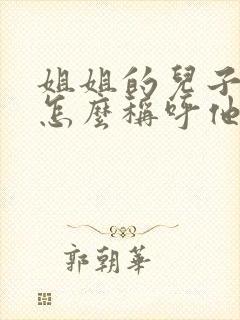 姐姐的兒子
怎麼稱呼他
郭朝華